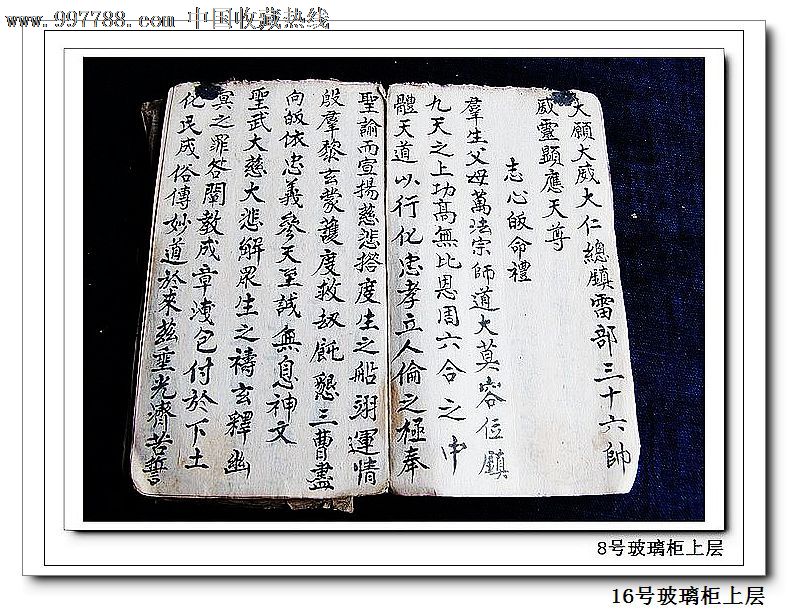 www.997788.com 中国收藏热线
大願大威大仁總鎮雷部三十六帥
威靈顯應天尊
志心皈命禮
羣生父母萬法宗師道大莫容位鎮
九天之上功高無比恩周六合之中
體天道以行化忠孝立人倫之極奉
聖諭而宣揚慈悲撘度生之船翊運情
殷羣黎玄蒙護度救劫飩懇三曹盡
向皈依忠義參天至誠無息神文
聖武大慈大悲解眾生之禱玄釋幽
冥之罪答闡敎成章包付於下土
化民成俗傳妙道於來茲垂光濟苦誓
8号玻璃柜上层
16号玻璃柜上层